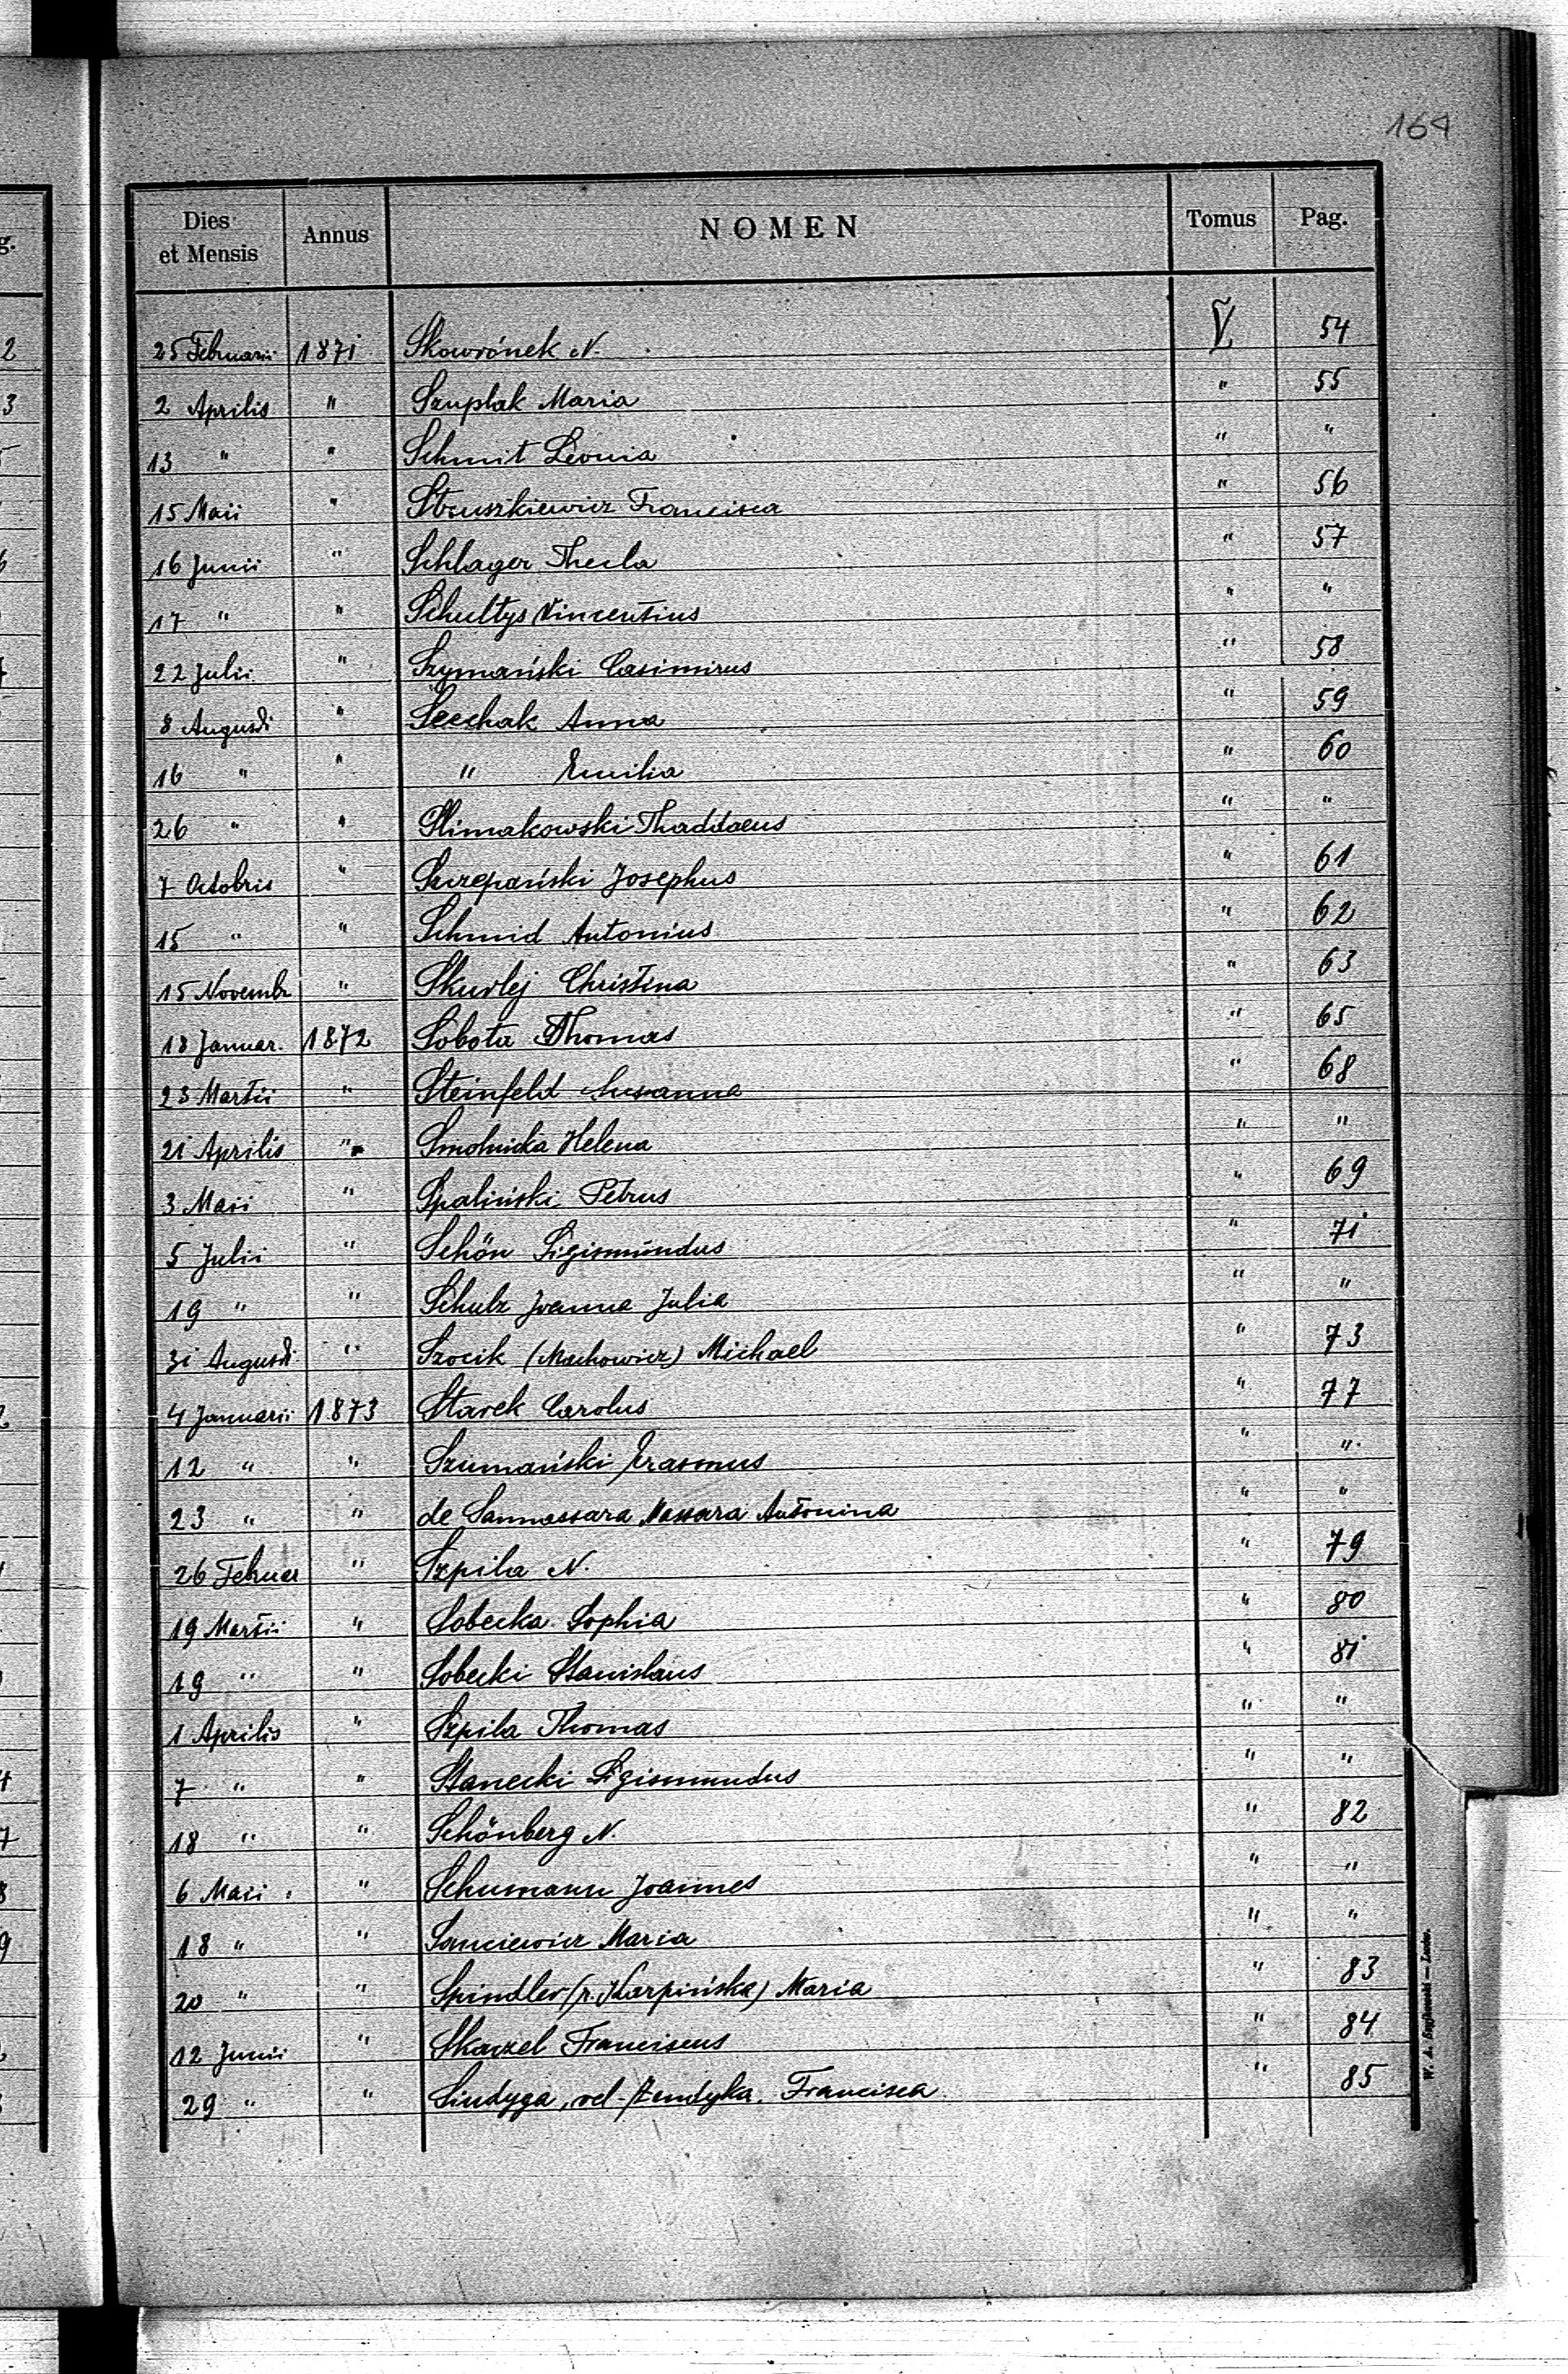 164
Dies et Mensis Annus NOMEN Tomus Pag.
25 Februarii 1871 Skowrónek N. V 54
2 Aprilis " Szuplak Maria " 55
13 " " Schmit Leonia " "
15 Maii " Struszkiewicz Francisca " 56
16 Junii " Schlager Thecla " 57
17 " " Schultys Vincentius " "
22 Julii " Szymański Casimirus " 58
8 Augusti " Anna " 59
16 " " " Emilia " 60
26 " " Slimakowski Thaddaeus " "
7 Octobris " Szczepański Josephus " 61
15 " " Schmid Antonius " 62
15 Novembr " Christina " 63
18 Januar. 1872 Sobota Thomas " 65
23 Martii " Steinfeld Susanna " 68
21 Aprilis " Smolnicka Helena " "
3 Maii " Spaliński Petrus " 69
5 Julii " Schön Sigismundus " 71
19 " " Schulz Joanna Julia " "
31 Augusti " Szocik (Machowicz) Michael " 73
4 Januarii 1873 Starek Carolus " 77
12 " " Szumański Erasmus " "
23 " " de Sannassara Massara Antonina " "
26 Februar " Szpila N. " 79
19 Martii " Sobecka Sophia " 80
19 " " Sobecki Stanislaus " 81
1 Aprilis " Szpila Thomas " "
7 " " Stanecki Sigismundus " "
18 " " Schönberg N. " 82
6 Maii " Schumann Joannes " "
18 " " Sanciewicz Maria " "
20 " " Spindler (r. Karpińska) Maria " 83
12 Junii " Skarzel Franciscus " 84
29 " " Sindyga, vel Zendyka. Francisca " 85